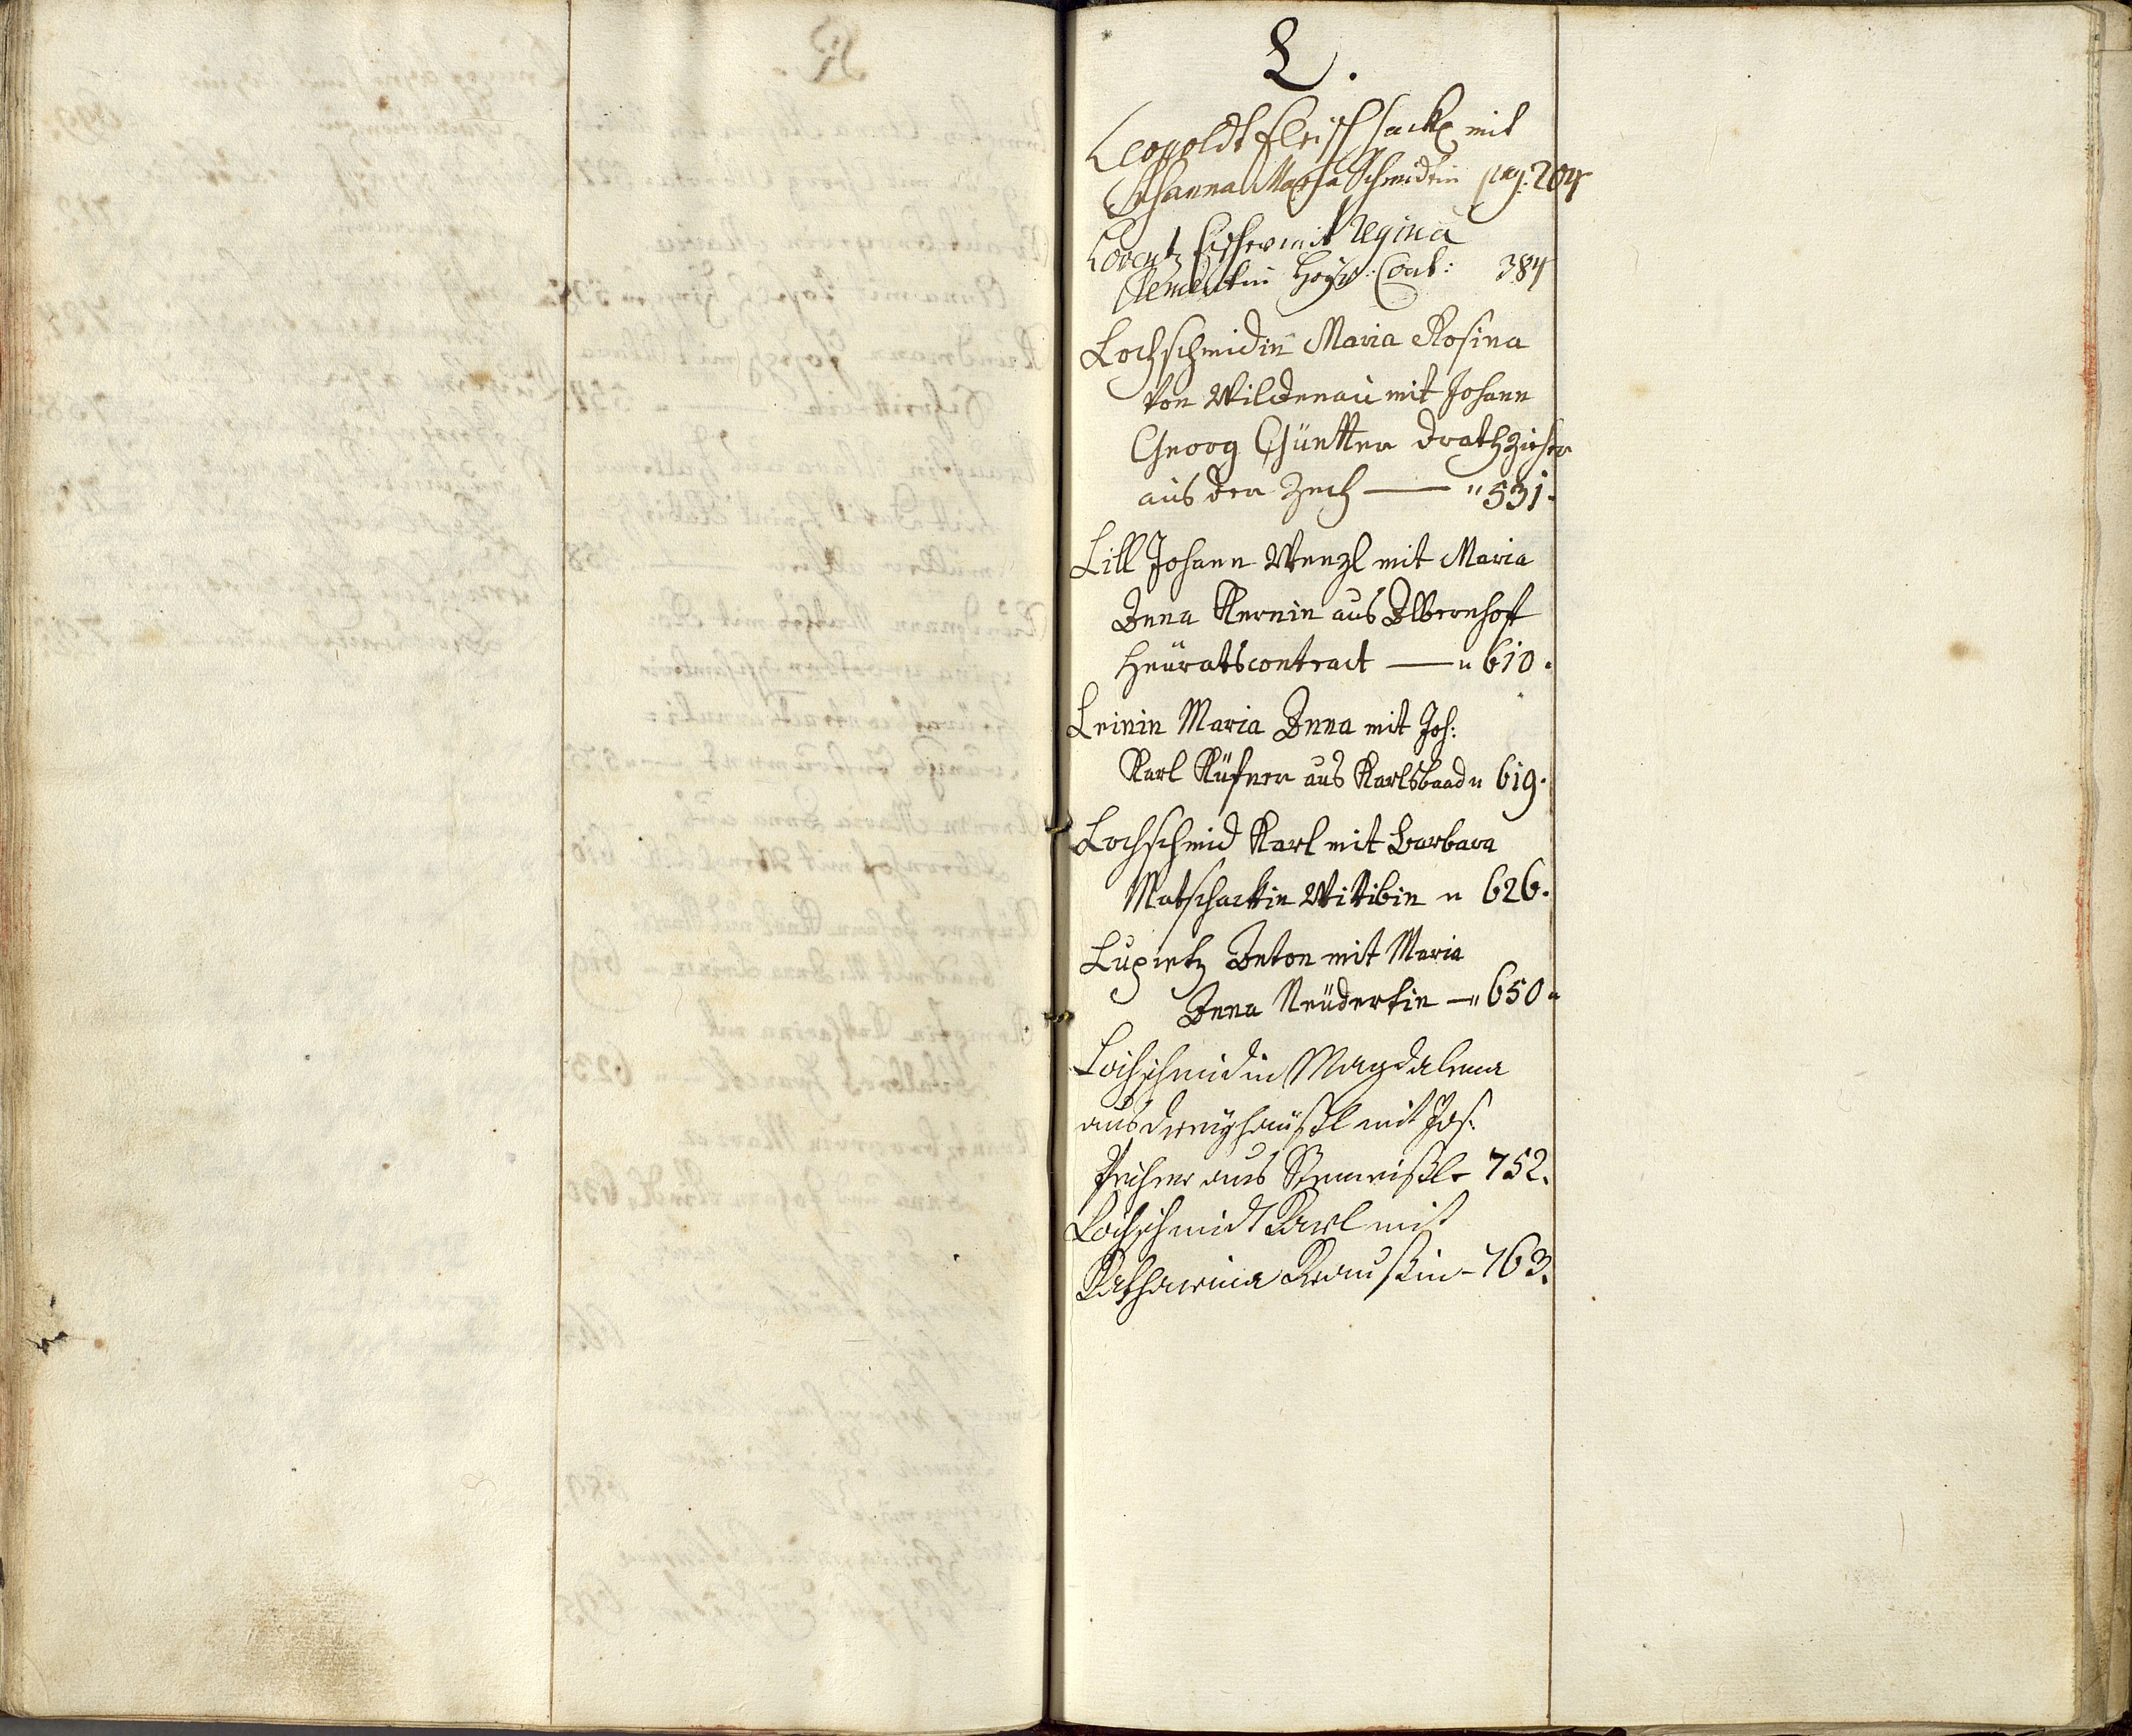 L.
Leopoldt Fleischsackh mit
Johanna Maria Schmidtin pag: 204
Lorentz Fischer mit Regina
Clementin Heÿr: Cont: 384
Lochschmidin Maria Rosina
von Wildenau mit Johann
Georg Günttner Drathzieher
aus der Zech — " 531.
Lill Johann Wenzl mit Maria
Anna Kernin aus Albernhoff
Heüratscontract — " 610.
Leinin Maria Anna mit Joh:
Karl Küfner aus Karlsbaad " 619.
Lochschmid Karl mit Barbara
Matschackin Wittibin " 626.
Lupietz Anton mit Maria
Anna Neüdertin — " 650.
Lochschmidin Magdalena
aus Dreÿhäußl mit Jos:
aus 752.
Lochschmidt Karl mit
Katharina Kraußin - 763.